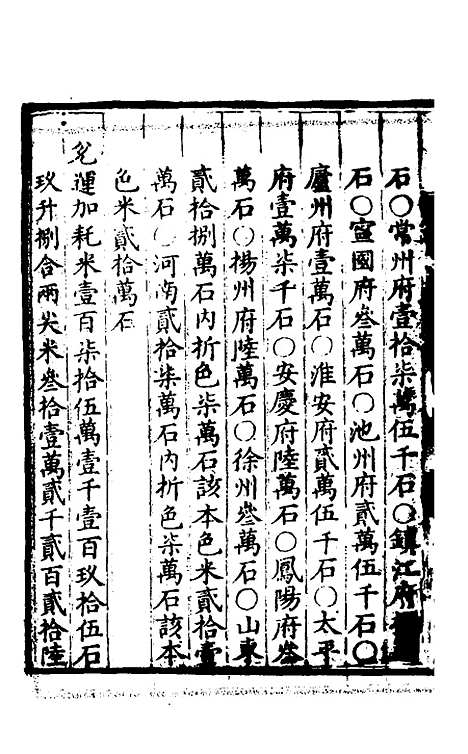 石〇常州府壹拾柒萬伍千石〇鎮江府
石〇寧國府叁萬石〇池州府貳萬伍千石〇
廬州府壹萬石〇淮安府貳萬伍千石〇太平
府壹萬柒千石〇安慶府陸萬石〇鳳陽府叁
萬石〇揚州府陸萬石〇徐州叁萬石〇山東
貳拾捌萬石內折色柒萬石該本色米貳拾壹
萬石〇河南貳拾柒萬石內折色柒萬石該本
色米貳拾萬石
兌運加耗米壹百柒拾伍萬壹千壹百玖拾伍石
玖升捌合兩尖米叁拾壹萬貳千貳百貳拾陸